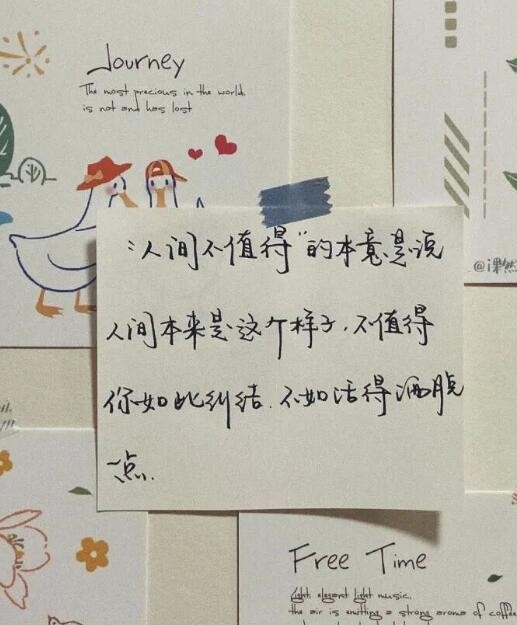 Journey
The most precious in the world,
is not and has lost
"人间不值得"的本意是说
人间本来是这个样子,不值得
你如此纠结,不如活得洒脱
一点.
@课然
Free Time
Light, elegant light music,
the air is emitting a strong aroma of coffee